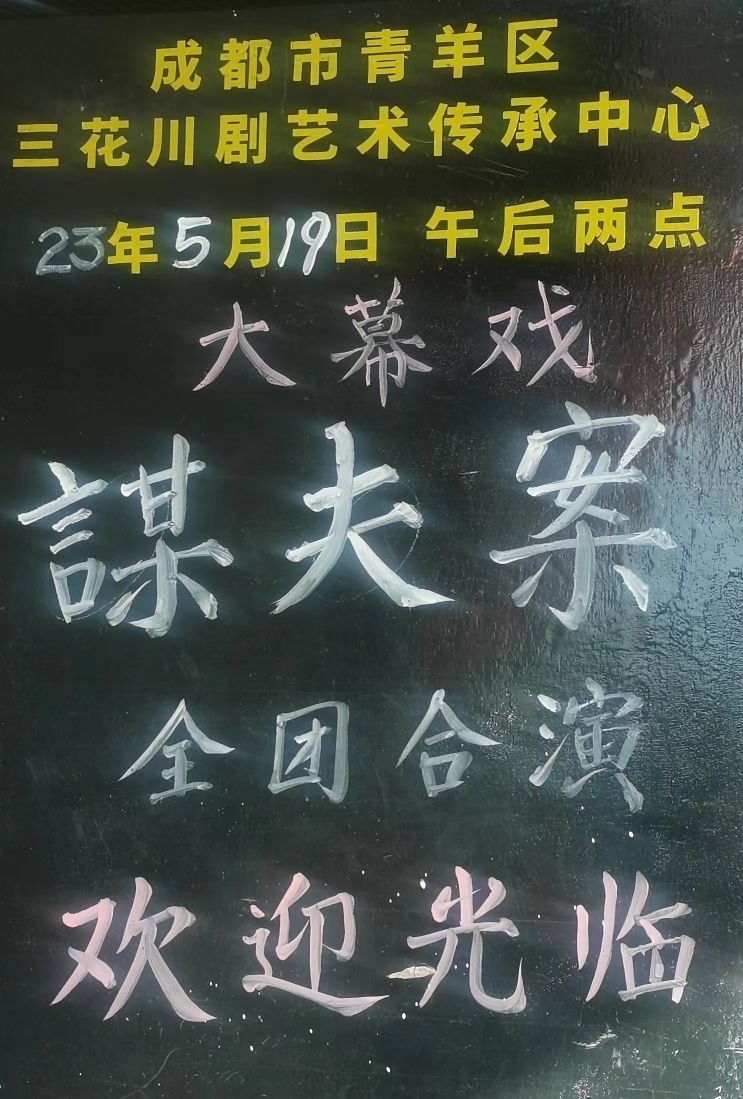 成都市青羊区
三花川剧艺术传承中心
23年5月19日 午后两点
大幕戏
謀夫案
全团合演
欢迎光临